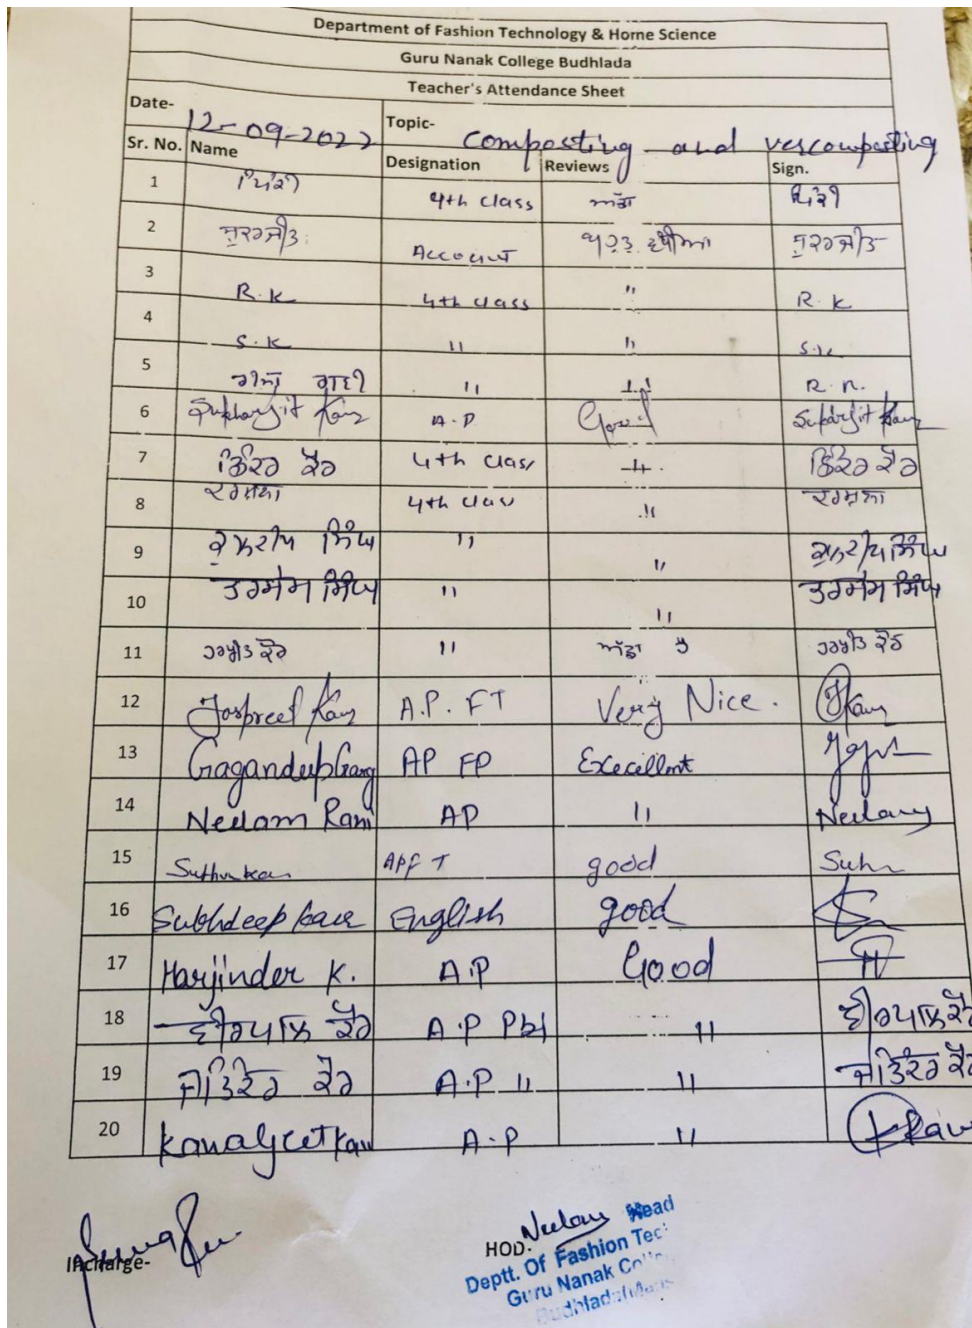 Department of Fashion Technology & Home Science
Guru Nanak College Budhlada
Teacher's Attendance Sheet
Date- 12-09-2022 Topic- Composting and vercomposting
Sr. No. Name Designation Reviews Sign.
1 4th class ਅੱਛਾ
2 ਸੁਖਜੀਤ Account ਬਹੁਤ ਵਧੀਆ ਸੁਖਜੀਤ
3 R.K 4th class " R.K
4 S.K " " S.K
5 ਰਾਣੀ " " R.R.
6 Sukharjit Kaur A.P Good Sukharjit Kaur
7 ਛਿੰਦਰ ਕੌਰ 4th Class " ਛਿੰਦਰ ਕੌਰ
8 4th class "
9 ਕੁਲਦੀਪ ਸਿੰਘ " " ਕੁਲਦੀਪ ਸਿੰਘ
10 ਤਰਸੇਮ ਸਿੰਘ " " ਤਰਸੇਮ ਸਿੰਘ
11 ਕੌਰ " ਅੱਛਾ ਹੈ ਕੌਰ
12 Jaspreet Kaur A.P. FT Very Nice. JKaur
13 Gagandeep Garg AP FP Excecillent
14 Neelam Rani AP " Neelam
15 APFT good
16 Subhdeep kaur English good
17 Harjinder K. A.P Good
18 ਵੀਰਪਾਲ ਕੌਰ A.P Pbi " ਵੀਰਪਾਲ ਕੌਰ
19 ਜੋਤਿੰਦਰ ਕੌਰ A.P " " ਜੋਤਿੰਦਰ ਕੌਰ
20 A.P "
Incharge- HOD- Neelam
Head
Deptt. Of Fashion Tec
Guru Nanak Co
Budhlada